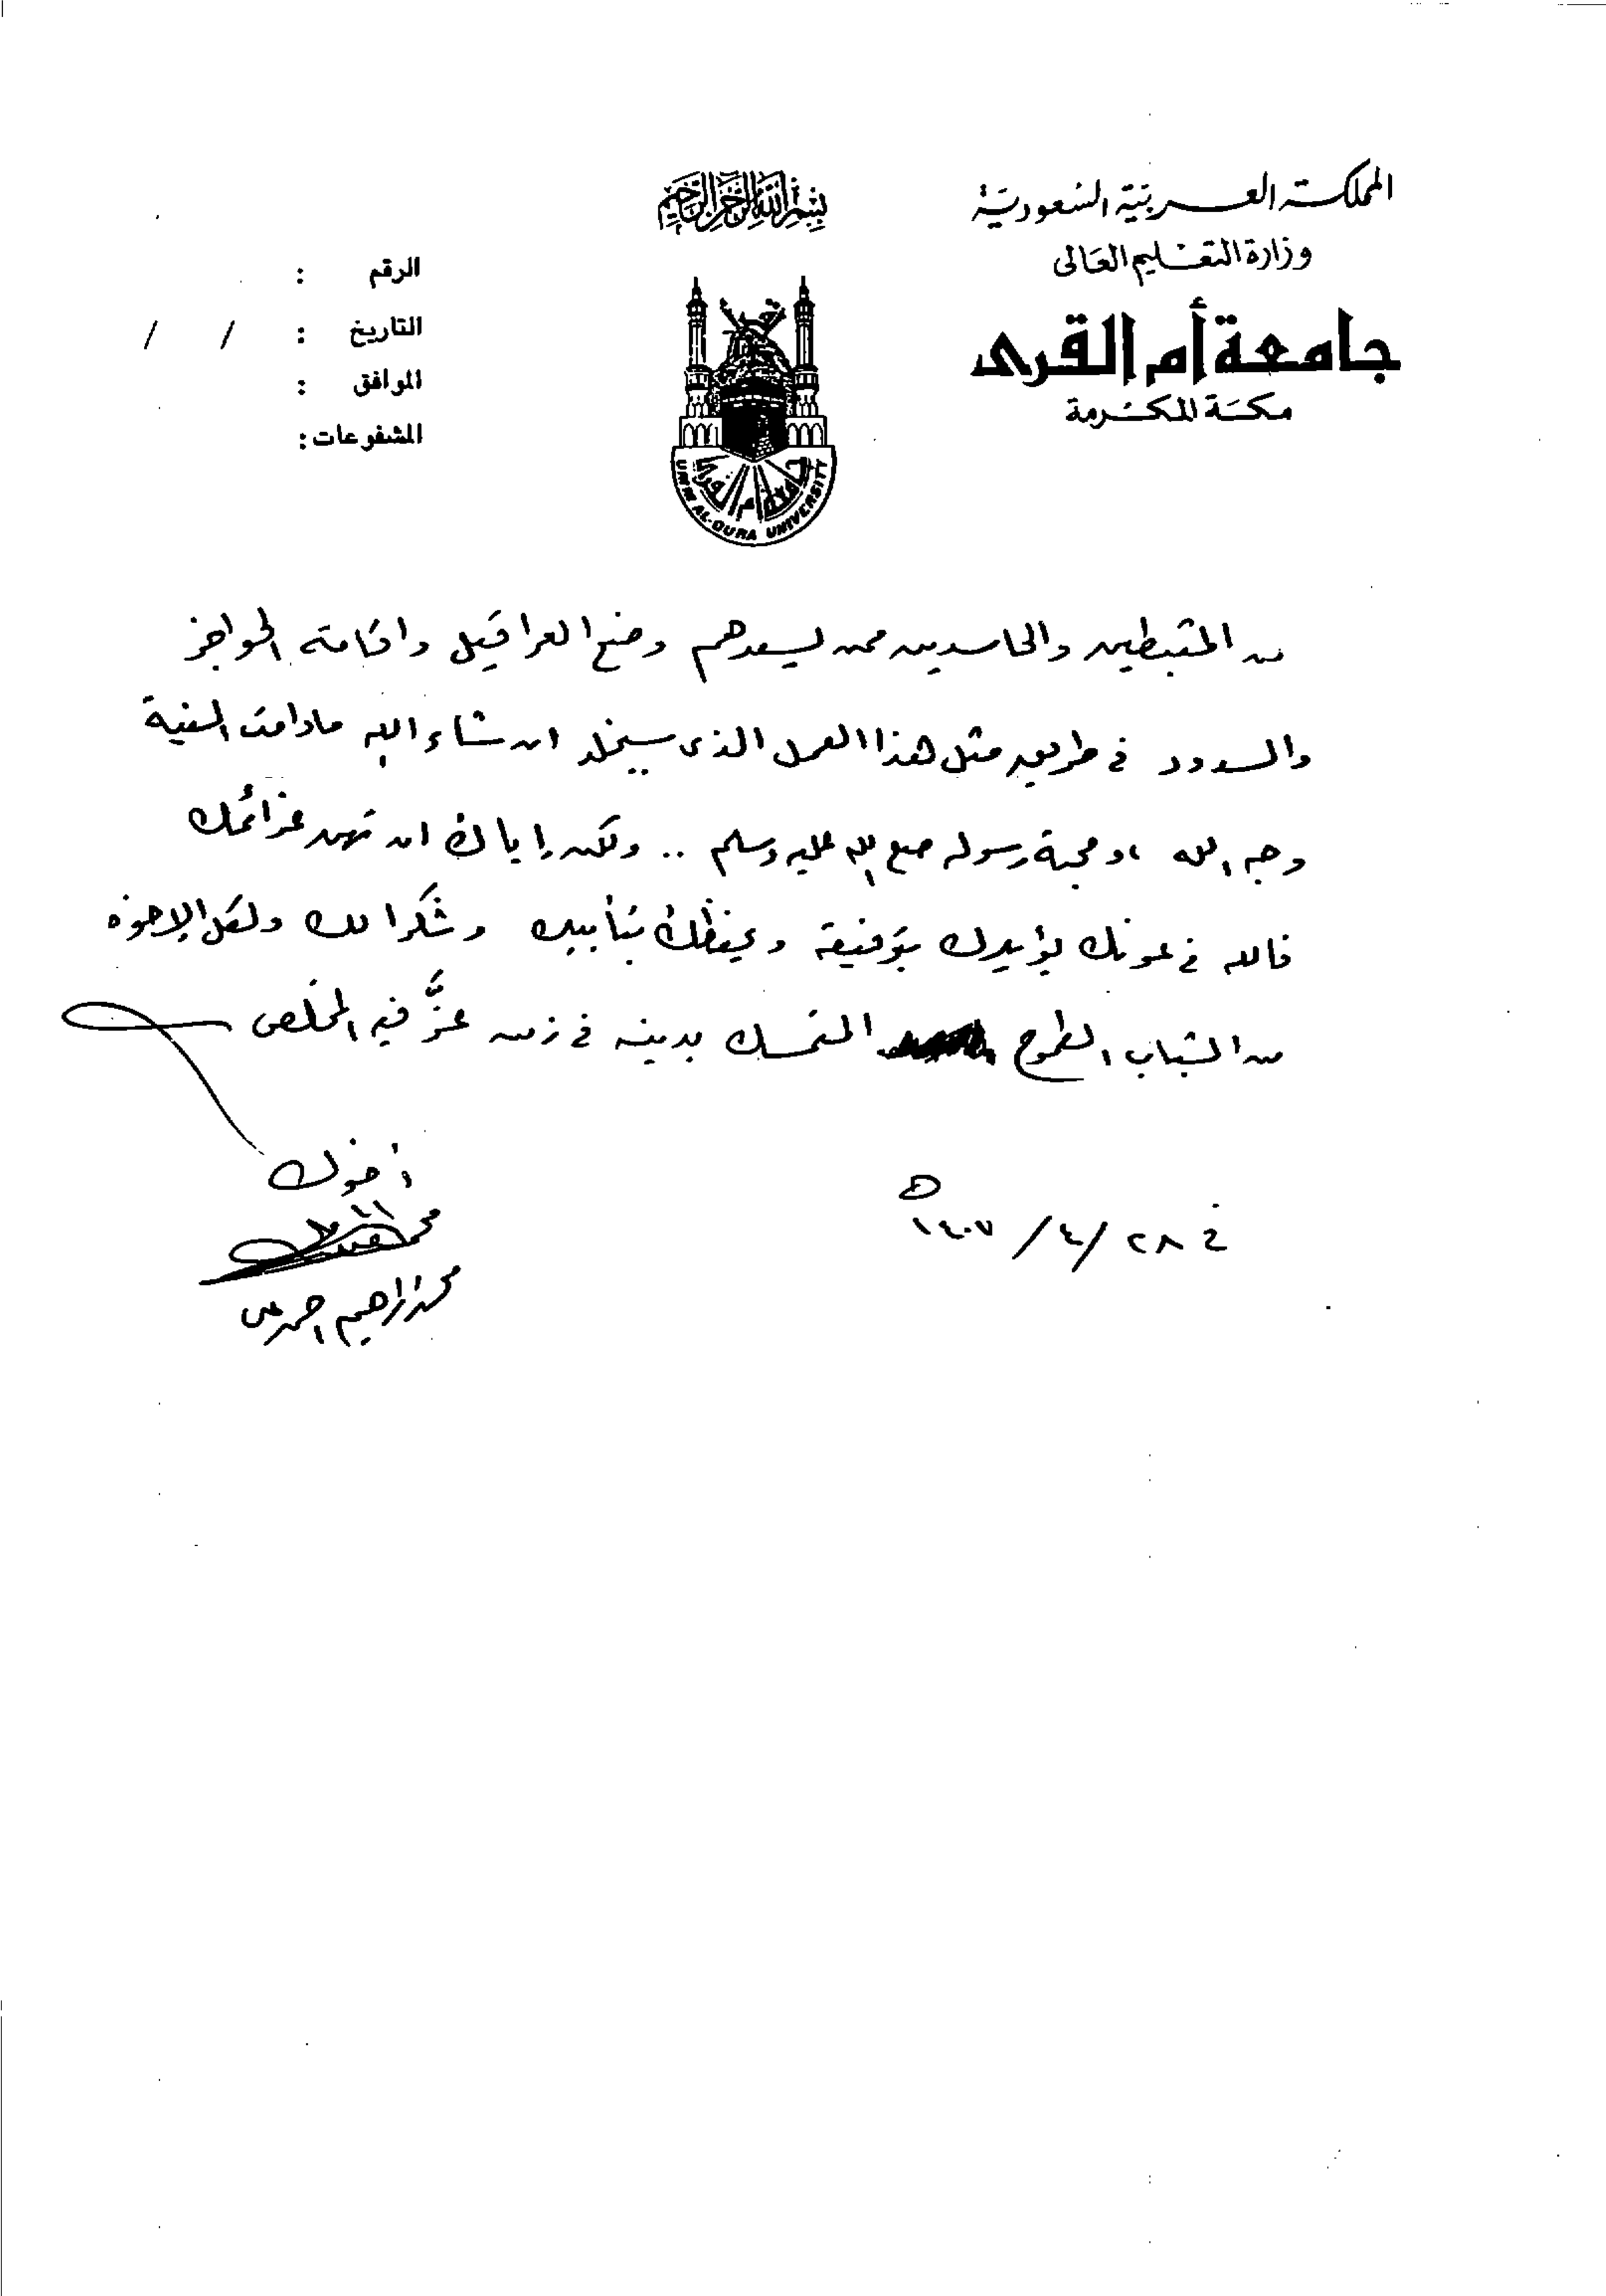 المملكة العربية السعودية
وزارة التعليم العالى
جامعة أم القرى
مكة المكرمة
بسم الله الرحمن الرحيم
جامعة أم القرى
UMM AL-QURA UNIVERSITY
الرقم :
التاريخ : / /
الموافق :
المشفوعات :
من المثبطين والحاسدين ممن يسعدهم وضع العراقيل واقامة الحواجز
والسدود فى طريق مثل هذا العمل الذى سيخلد ان شاء الله مادامت النية
وجه الله ، ومحبة رسوله صلى الله عليه وسلم .. ولكن إياك ان تهن عزائمك
فالله فى عونك يؤيدك بتوفيقه ويحفظك بتأييده وشكرا لك ولكل الإخوة
من الشباب الطموح المتمسك بدينه فى زمن عزَّ فيه المخلص
أخوك
محمد ابراهيم احمد على
فى ٢٨ /٤/ ١٤٠٧ هـ